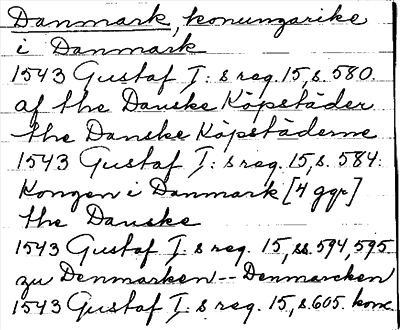 Danmark, konungarike
i Danmark
1543 Gustaf I: s reg. 15, s. 580.
af the Danske Köpstäder
the Danske Köpstäderne
1543 Gustaf I: s reg. 15, s. 584:
Kongen i Danmark [4 ggr]
the Danske
1543 Gustaf I: s reg. 15, ss. 594, 595
zu Denmarken -- Denmarcken
1543 Gustaf I: s reg. 15, s. 605. konc.